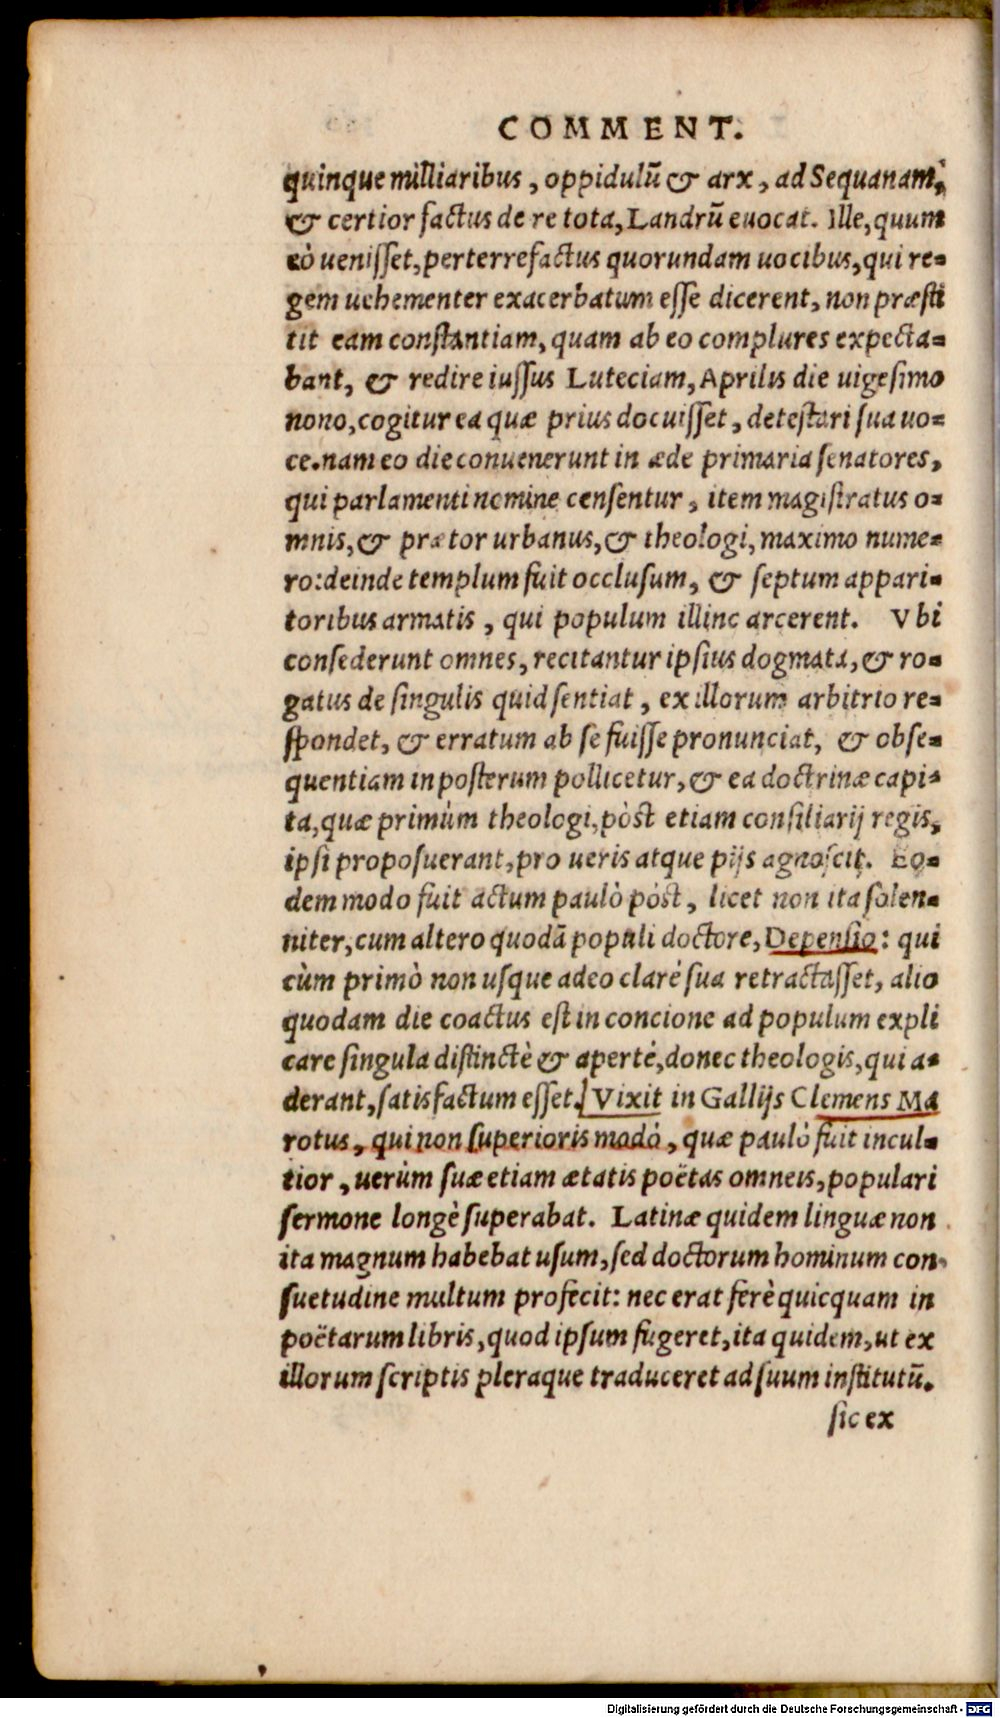 COMMENT.
quinque milliaribus, oppidulū & arx, ad Sequanam,
& certior factus de re tota, Landrū euocat. Ille, quum
eò uenisset, perterrefactus quorundam uocibus, qui re-
gem uehementer exacerbatum esse dicerent, non præsti
tit eam constantiam, quam ab eo complures expecta-
bant, & redire iussus Luteciam, Aprilis die uigesimo
nono, cogitur ea quæ prius docuisset, detestari sua uo-
ce. nam eo die conuenerunt in æde primaria senatores,
qui parlamenti nomine censentur, item magistratus o-
mnis, & prætor urbanus, & theologi, maximo nume-
ro: deinde templum fuit occlusum, & septum appari-
toribus armatis, qui populum illinc arcerent. Vbi
consederunt omnes, recitantur ipsius dogmata, & ro-
gatus de singulis quid sentiat, ex illorum arbitrio re-
spondet, & erratum ab se fuisse pronunciat, & obse-
quentiam in posterum pollicetur, & ea doctrinæ capi-
ta, quæ primùm theologi, pòst etiam consiliarij regis,
ipsi proposuerant, pro ueris atque pijs agnoscit. Eo-
dem modo fuit actum paulò pòst, licet non ita solen-
niter, cum altero quodā populi doctore, Depensio: qui
cùm primò non usque adeo clarè sua retractasset, alio
quodam die coactus est in concione ad populum expli
care singula distinctè & apertè, donec theologis, qui a-
derant, satisfactum esset. Vixit in Gallijs Clemens Ma
rotus, qui non superioris modò, quæ paulò fuit incul-
tior, uerùm suæ etiam ætatis poëtas omneis, populari
sermone longè superabat. Latinæ quidem linguæ non
ita magnum habebat usum, sed doctorum hominum con-
suetudine multum profecit: nec erat ferè quicquam in
poëtarum libris, quod ipsum fugeret, ita quidem, ut ex
illorum scriptis pleraque traduceret ad suum institutū.
sic ex
Digitalisierung gefördert durch die Deutsche Forschungsgemeinschaft - DFG